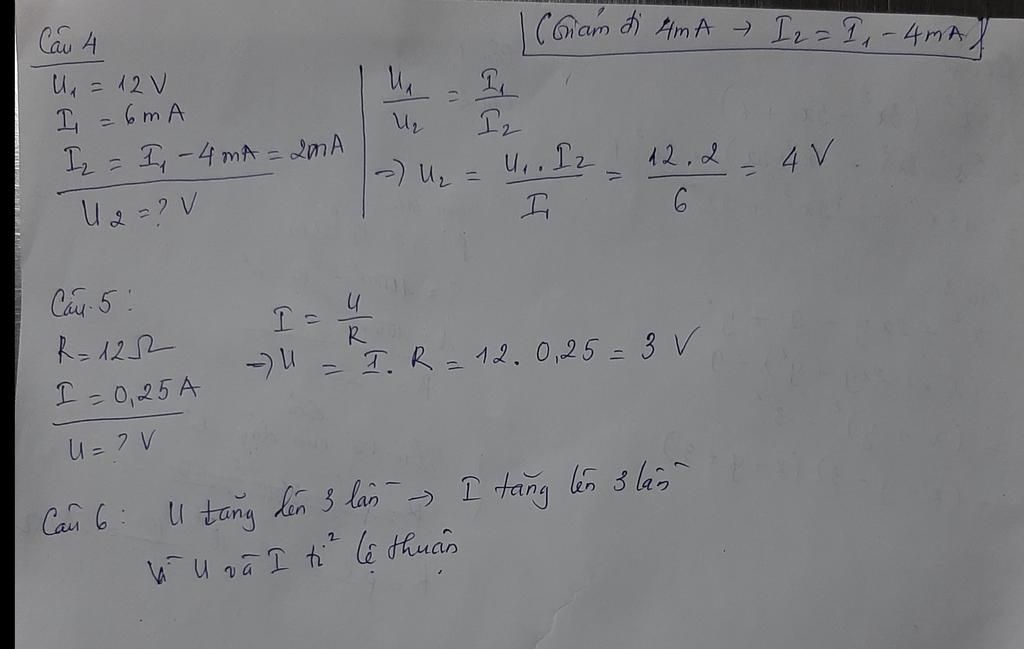 (Giảm đi 4mA → I₂ = I₁ - 4mA)
Câu 4
U₁ = 12 V
I₁ = 6 mA
I₂ = I₁ - 4 mA = 2mA
U₂ = ? V
U₁/U₂ = I₁/I₂
=> U₂ = U₁.I₂/I₁ = 12.2/6 = 4 V
Câu 5:
R = 12Ω
I = 0,25 A
U = ? V
I = U/R
=> U = I. R = 12. 0,25 = 3 V
Câu 6: U tăng lên 3 lần → I tăng lên 3 lần
Vì U và I tỉ lệ thuận